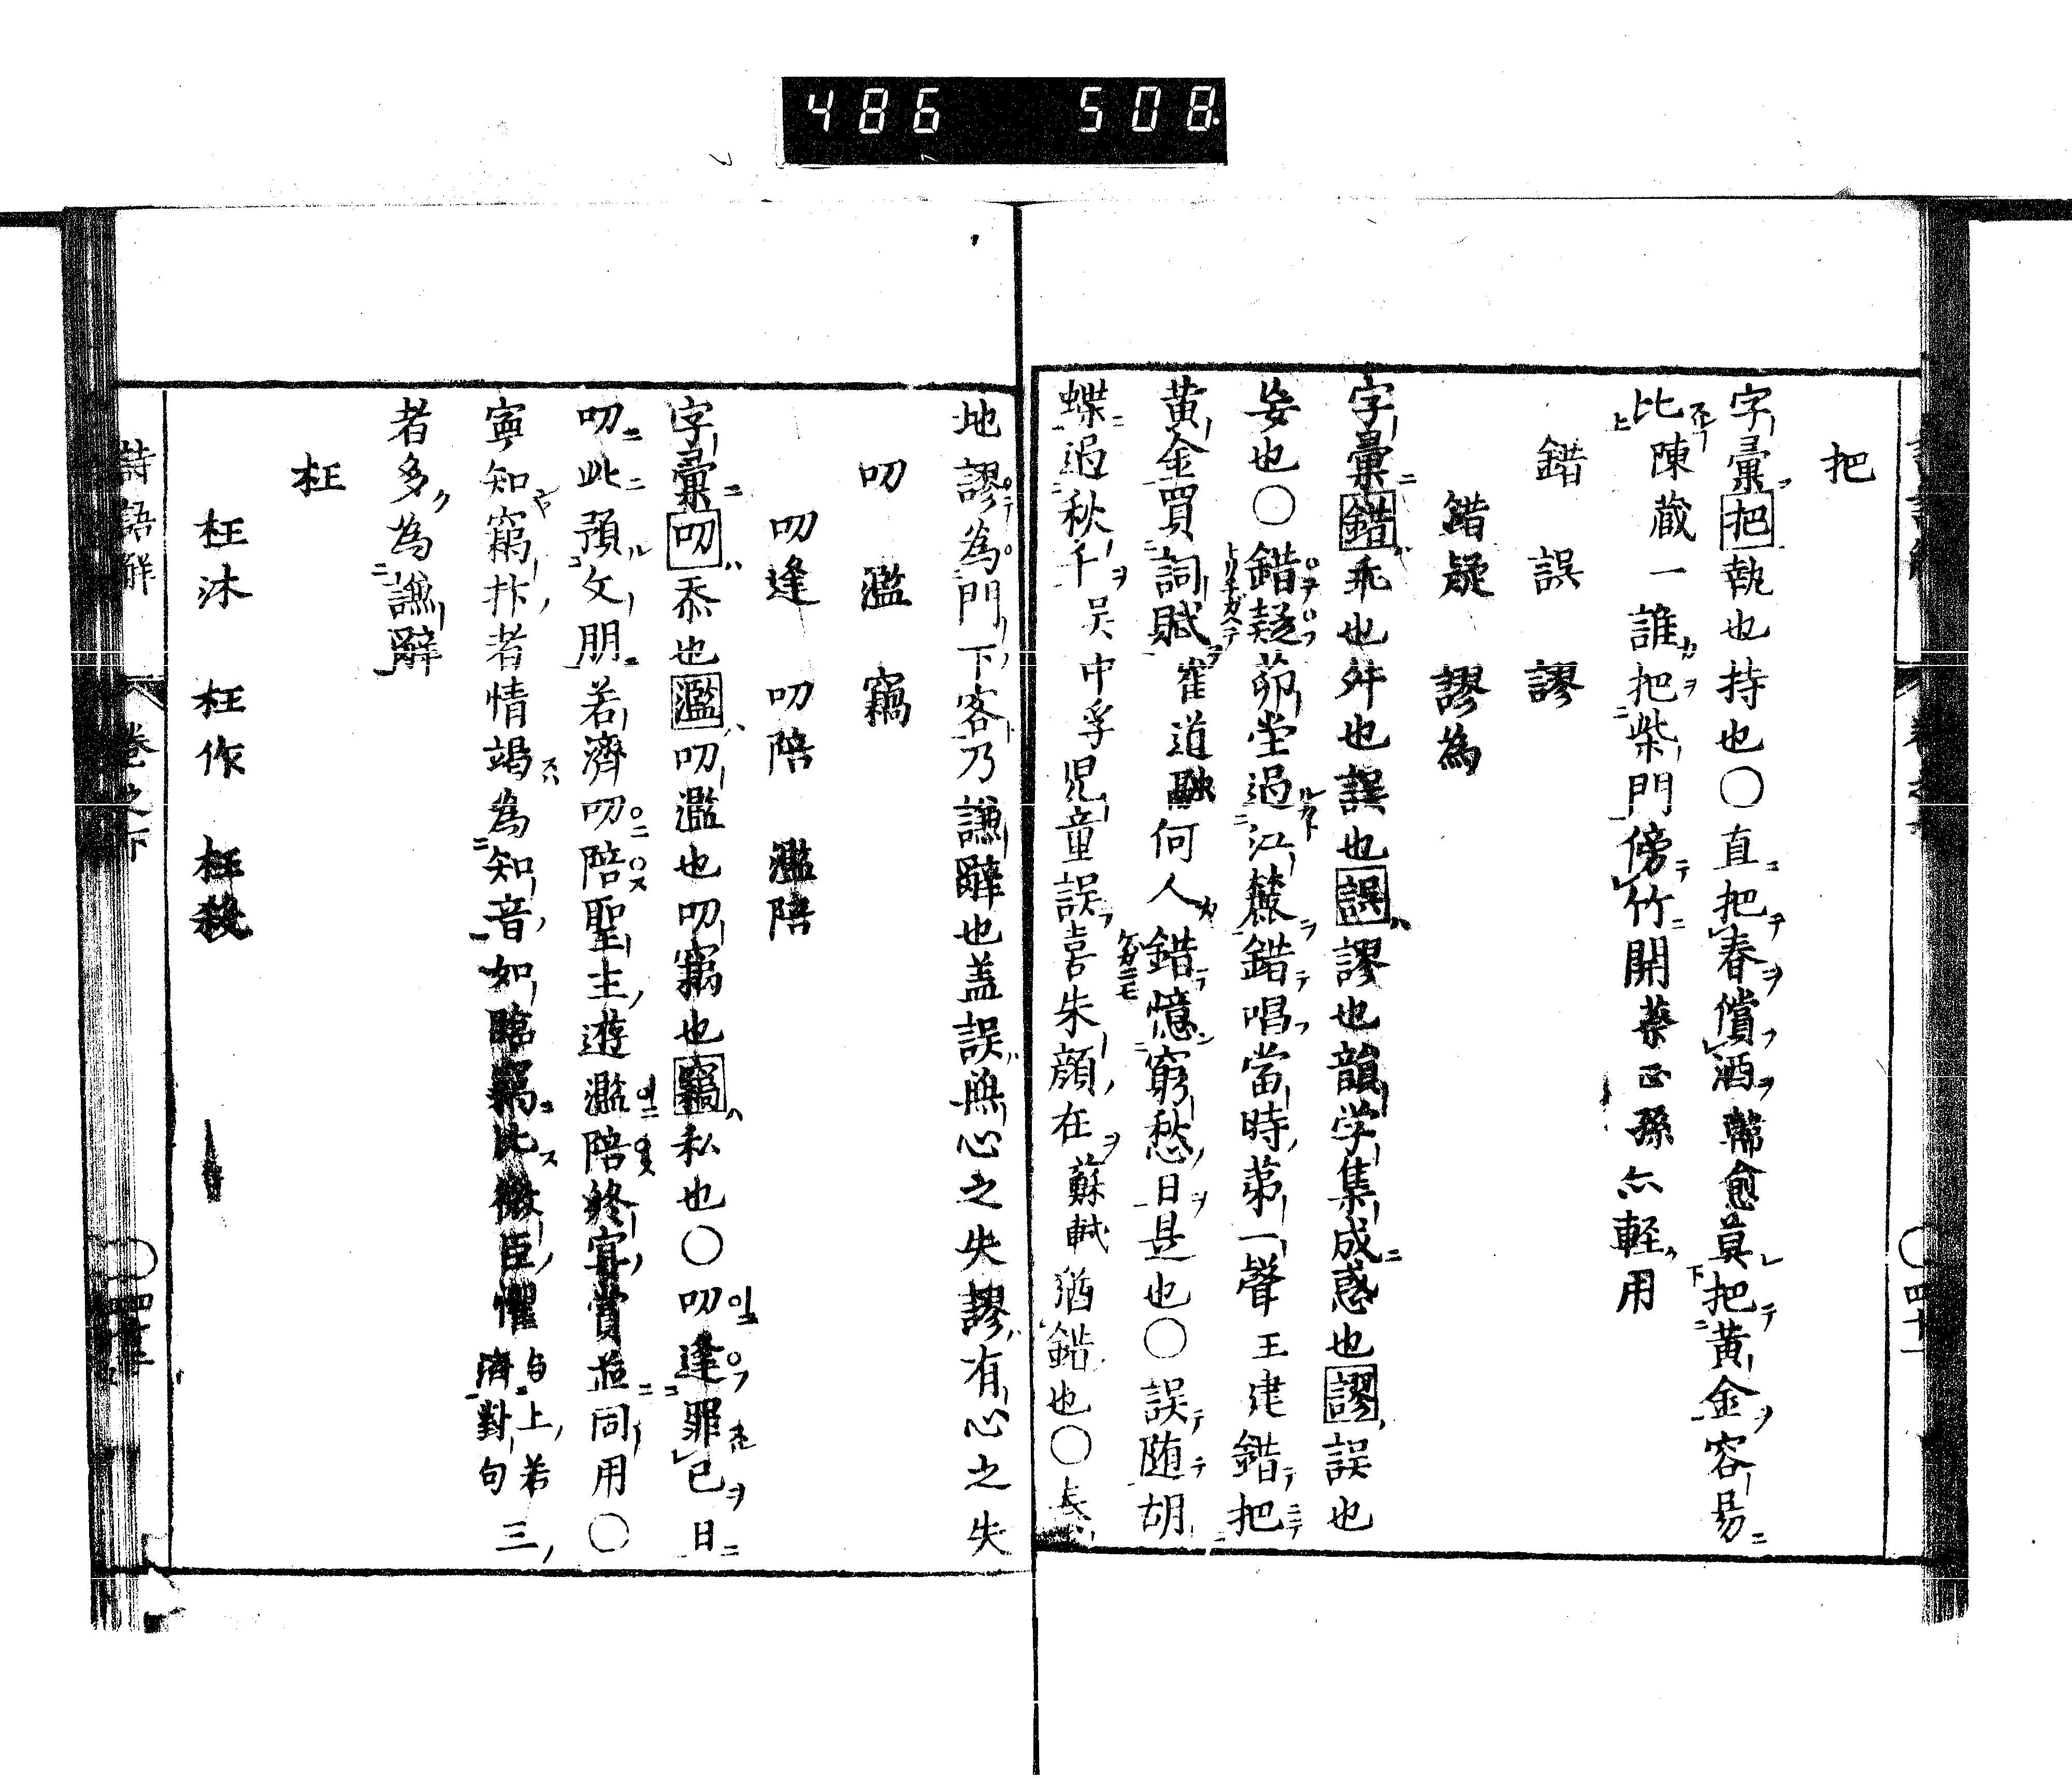 486 508
把
字彙把執也持也〇直把春償酒韓愈莫把黄金容易
比陳蔵一誰把柴門傍竹開葉正孫亦軽用
錯 誤 謬
錯疑 謬為
字彙錯乖也舛也誤也誤謬也韻学集成惑也謬誤也
妄也〇錯疑茆堂過江麓錯唱當時第一聲王建錯把
黄金買詞賦崔道融何人錯憶窮愁日是也〇誤随胡
蝶過秋千吴中孚児童誤喜朱顔在蘇軾猶錯也〇
地謬為門下客乃謙辭也盖誤無心之失謬有心之失
叨 濫 竊
叨逢 叨陪 濫陪
字彙叨忝也濫叨濫也叨竊也竊私也〇叨逢罪已日
叨此預文朋若濟叨陪聖主遊濫陪終宴賞並同用〇
寧知竊抃者情竭為知音如臨竊比微臣懼与上若濟對句三
者多為謙辭
枉
枉沐 枉作 枉殺
詩語解 卷之下 〇四十